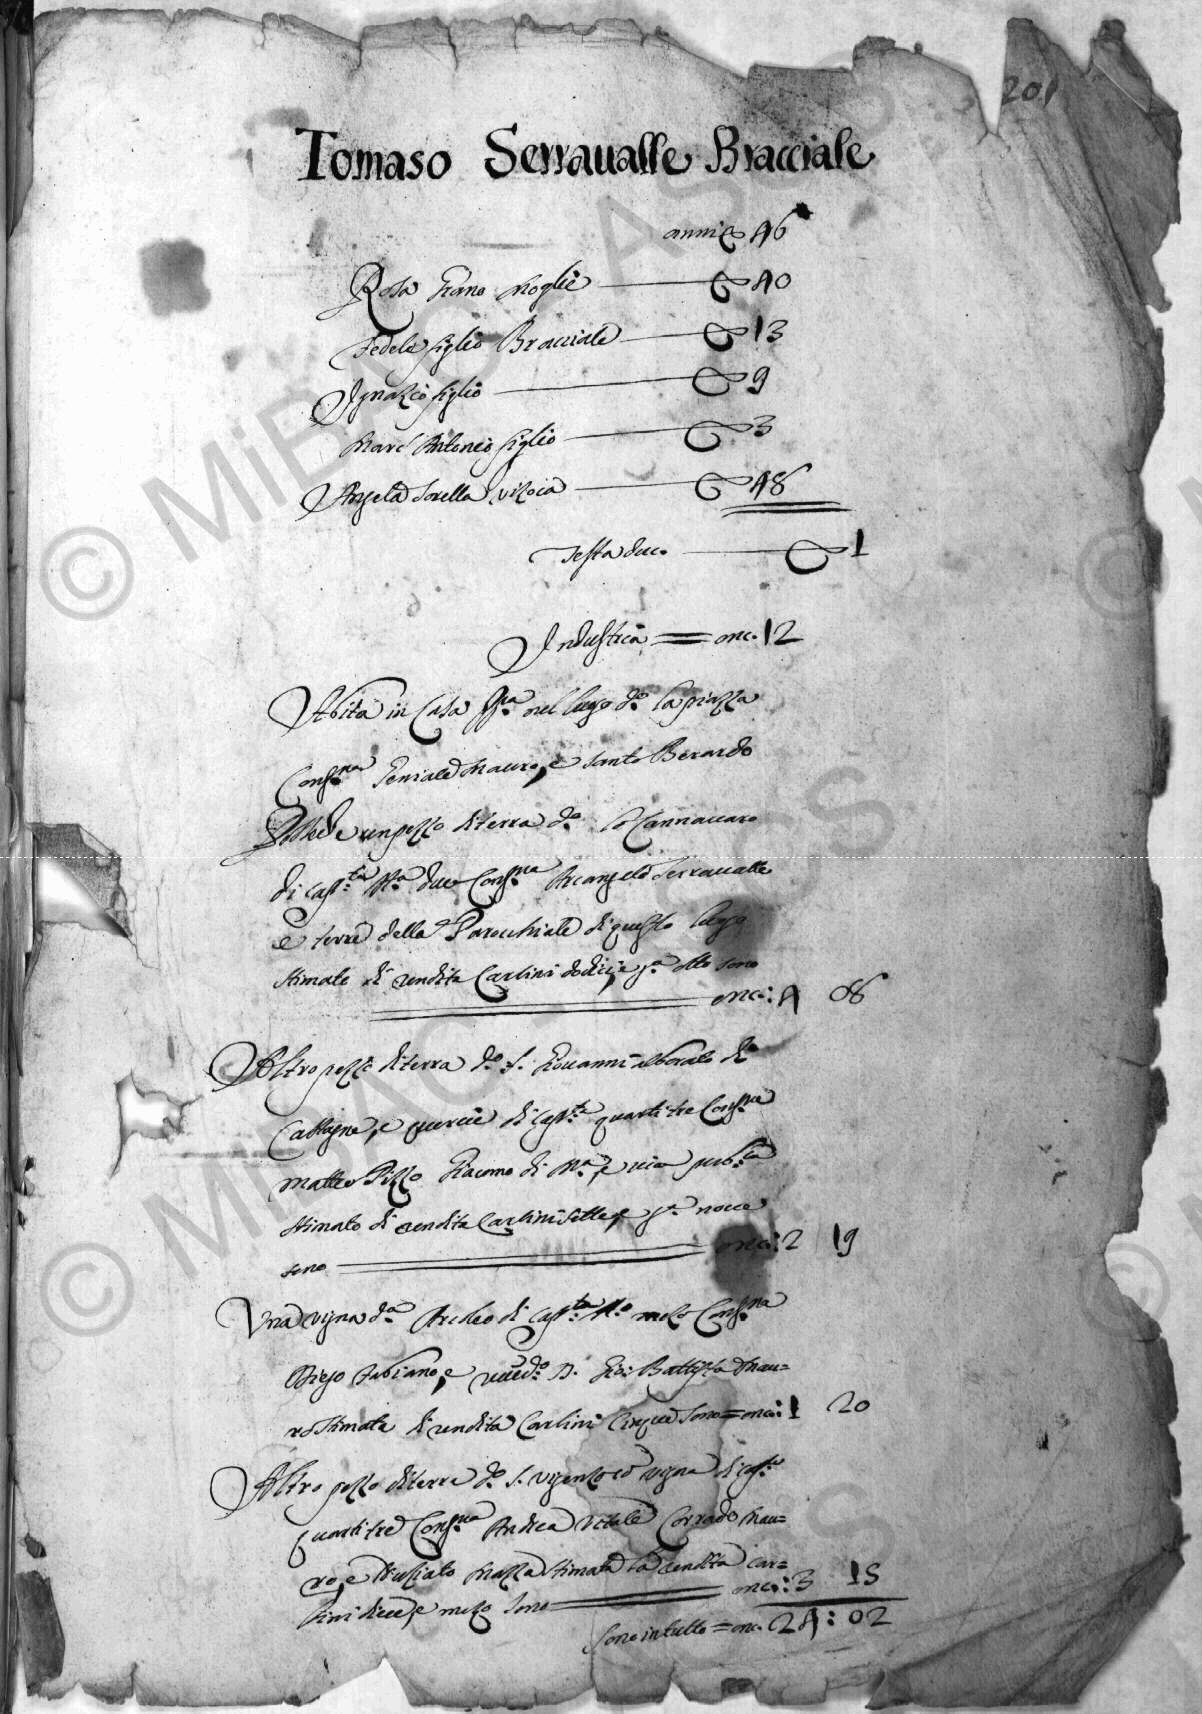 201
Tomaso Serraualle Bracciale
anni 46
Rosa moglie 40
Fedele figlio Bracciale 13
Ignazio figlio 9
Marc Antonio figlio 3
Angela sorella vizoca 48
Testa duc. 1
Industria = onc. 12
Abita in Casa ppa. nel luogo do. la piazza
Cons.na Mauro, e Santo Berardo
Possiede un pezzo di terra do. lo Cannauaro
di cap.tà due Cons.na Arcangelo Serraualle
e terre della Parocchiale di questo luogo
stimate di rendita Carlini dodici, e gra. otto sono
onc.: 4 06
Altro pezzo di terra do. S. Giouanni alborato di
Castagne, e quercie di cap.tà quarti tre Cons.na
Matteo Pizzo Giacomo di Ma., e via pub.ca
stimato di rendita Carlini sette, e gra. noue
sono onc.: 2 19
Una vigna da. di cap.tà mezo Cons.na
Diego Fabiano, e D. Gio: Battista Mau=
ro stimata di rendita Carlini Cinque sono = onc: 1 20
Altro pezzo di terra do. S. vigna di cap.tà
quarti tre Cons.na Andrea Vitale Corrado Mau=
ro, e Mazza stimata la rendita car=
lini diece, e mezo sono onc.: 3 15
Sono in tutto = onc. 24: 02
© MiBAC - ASCS
© MiBAC - ASCS